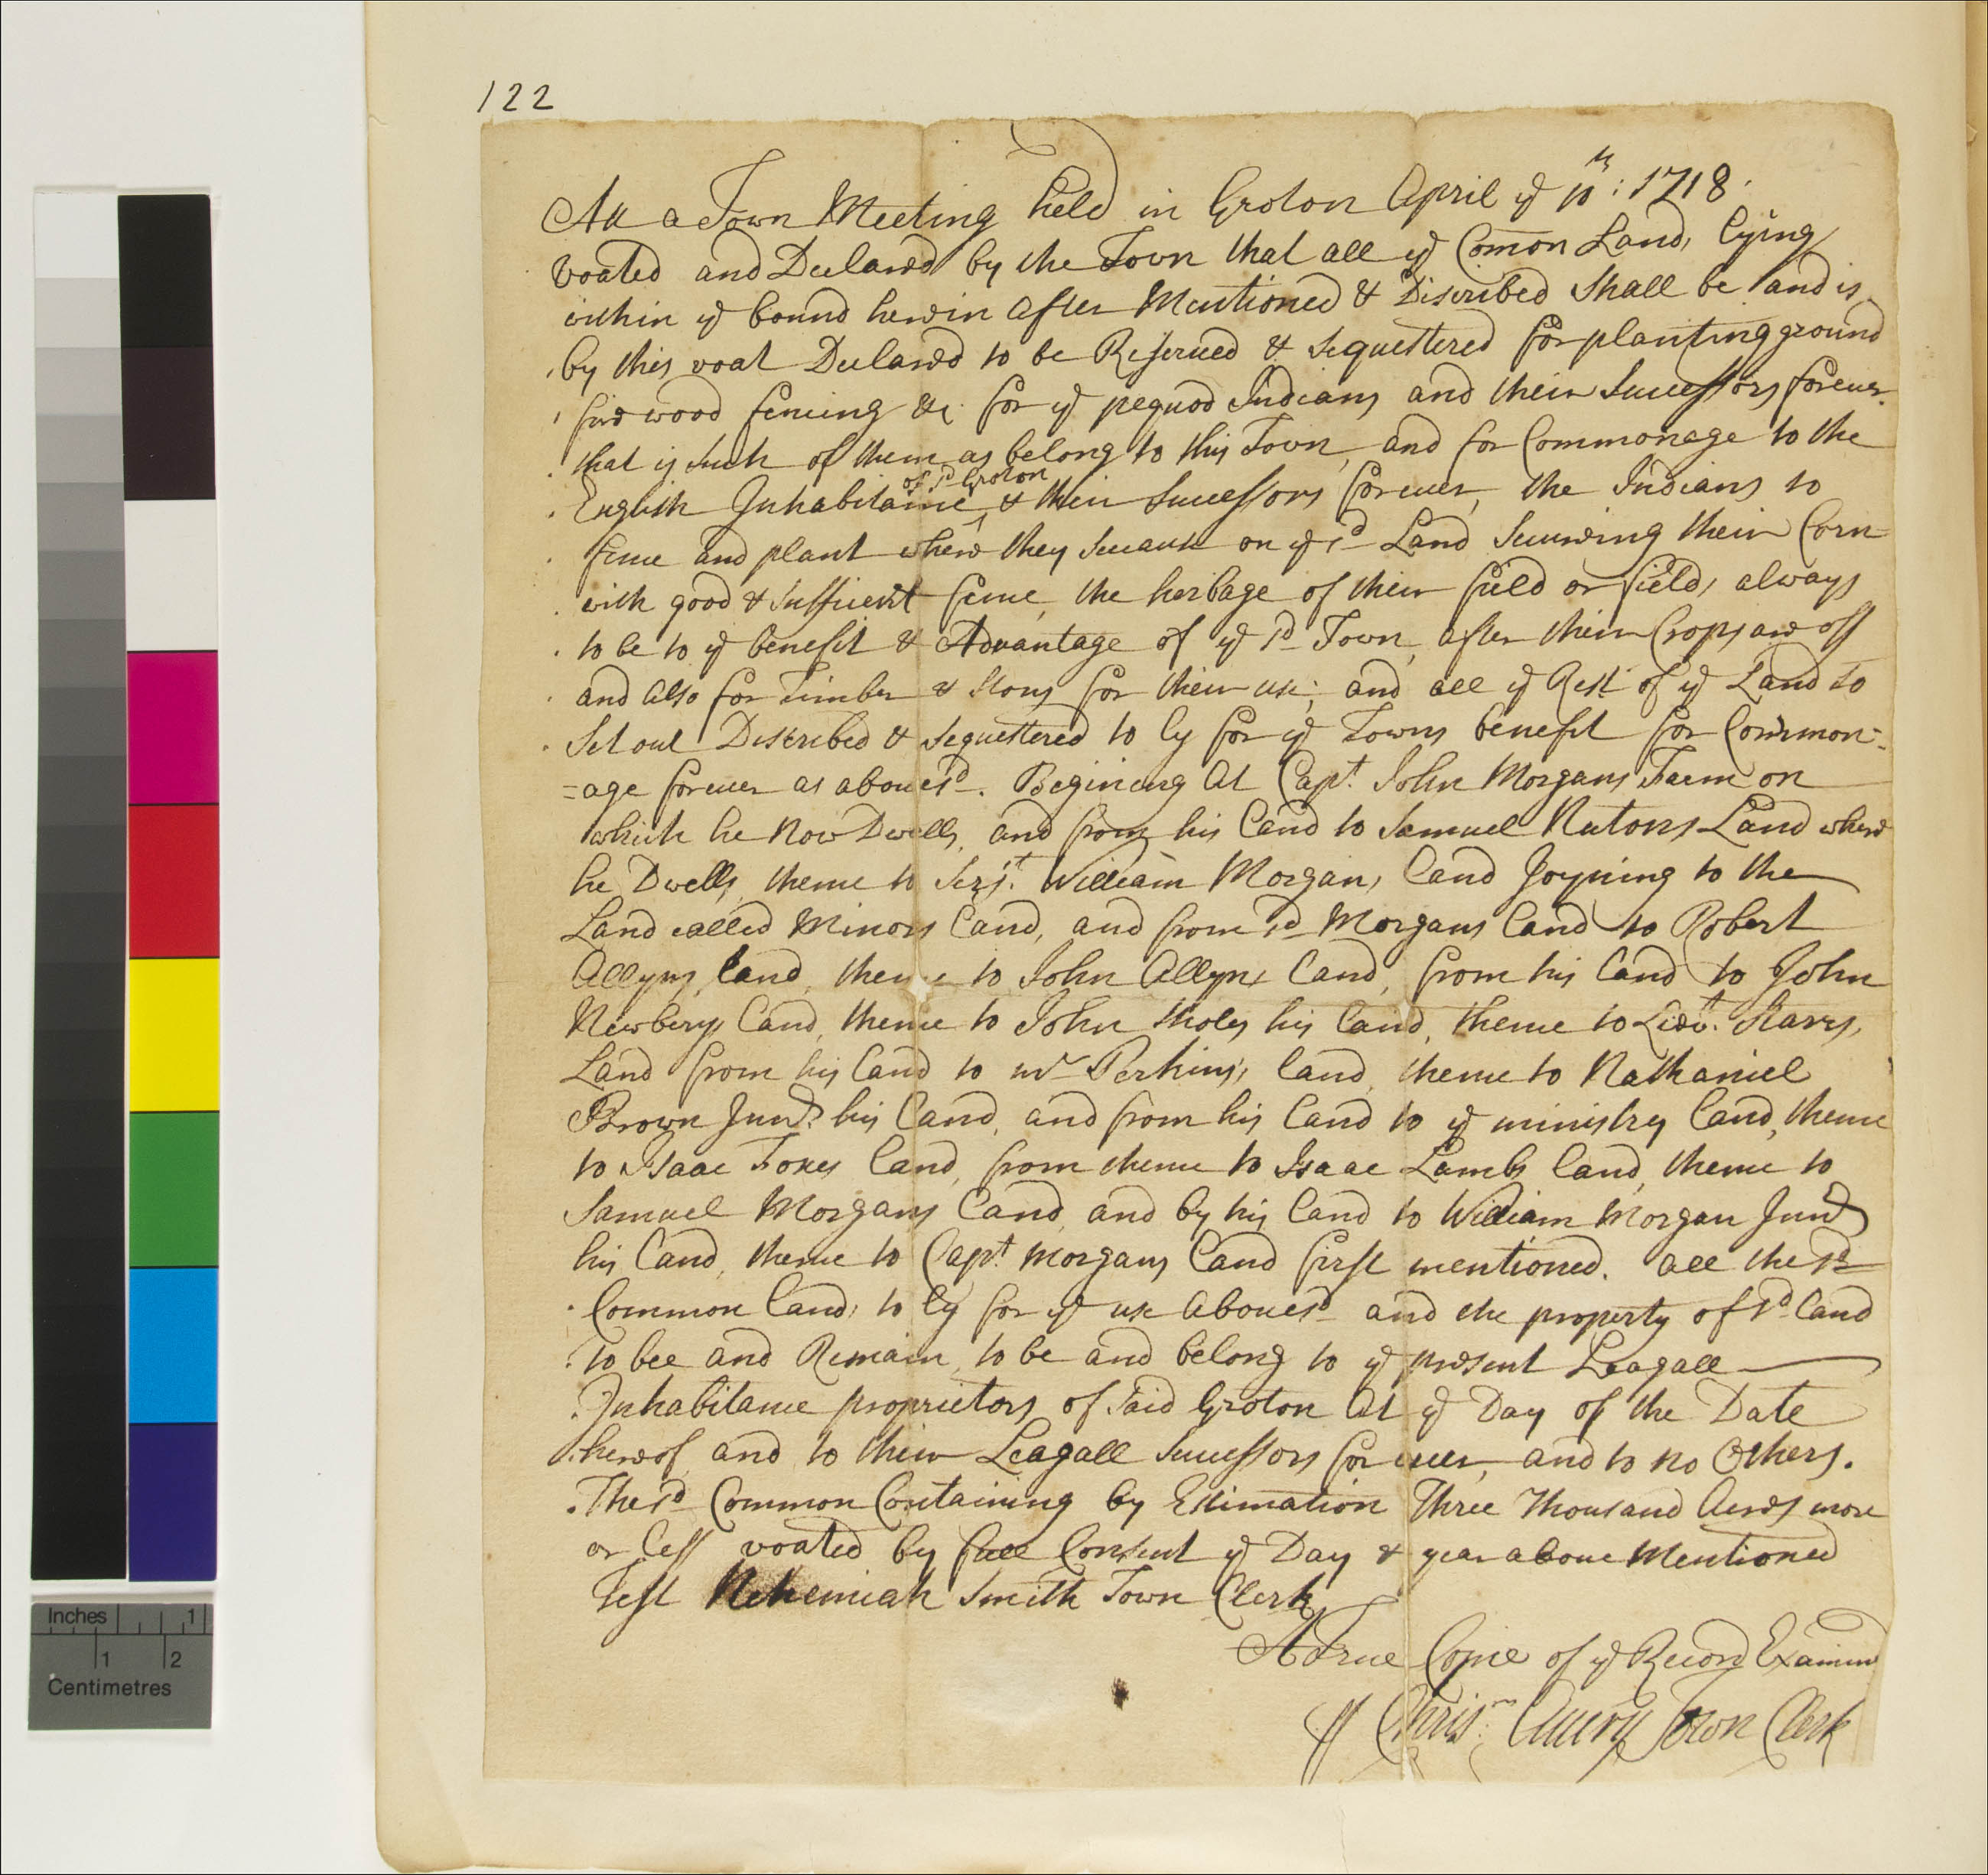 122
Att a Town Meeting held in Groton April ye 1st: 1718
voated and Declared by the Town that all ye Comon Lands lying
within ye bound herein after Mentioned & Discribed Shall be and is
by this voat Declared to be Reserued & Sequestered for planting ground
fire wood fencing &c for ye pequod Indians and their Successors foreuer.
that is such of them as belong to this Town, and for Commonage to the
of sd Groton
English Inhabitance, & their Successors foreuer, the Indians to
fence and plant where they see cause on ye sd Land Secureing their Corn
with good & sufficient fence, the herbage of their field or fields always
to be to ye benefit & Advantage of ye sd Town, after their Crops are off
and also for Timber & Stons for their use; and all ye Rest of ye Land so
Set out Described & Sequestered to ly for ye Towns benefit for Common=
=age foreuer as abouesd. Begining At Capt. John Morgans Farm on
which he Now Dwells, and from his land to Samuel Nutons Land where
he Dwells, thence to Serjt. William Morgans land Joyning to the
Land called Minors land, and from sd Morgans land to Robert
Allyns land, thence to John Allyns land, from his land to John
Newberys land, thence to John his land, thence to Liut. Starrs,
Land from his land to mr Perkins's land, thence to Nathaniel
Brown Junr his land, and from his land to ye ministry land, thence
to Isaac Foxes land, from thence to Isaac Lambs land, thence to
Samuel Morgans land, and by his land to William Morgan Junr
his land, thence to Capt. Morgans land first mentioned. all the sd
Common lands to ly for ye use abouesd and the property of sd land
to bee and Remain, to be and belong to ye present Leagall
Inhabitance proprietors of Said Groton At ye Day of the Date
hereof, and to their Leagall Successors for euer, and to no Others.
The sd Common Containing by Estimation Three Thousand Acres more
or less voated by full Consent ye Day & year aboue Mentioned
Test Nehemiah Smith Town Clerk
A True Copie of ye Record Examind
Chrisr. Auery Town Clerk
Inches 1
1 2
Centimetres